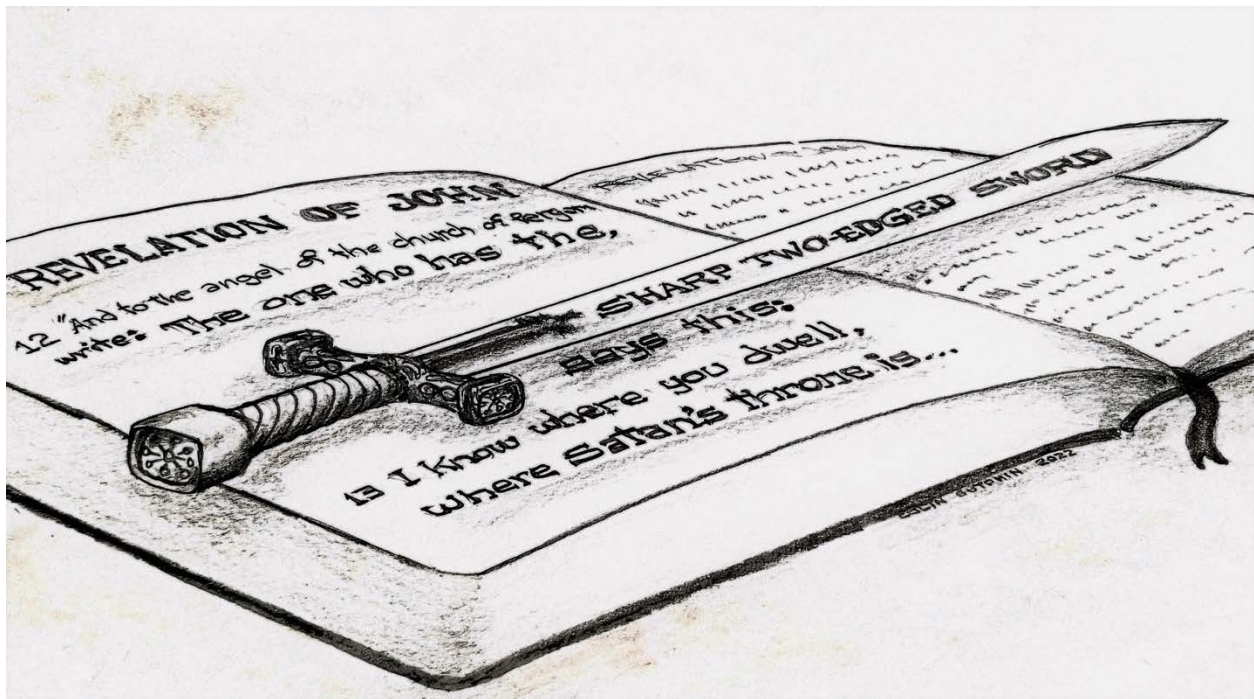 REVELATION OF JOHN
12 "And to the angel of the church of Pergam
write: The one who has the,
SHARP TWO-EDGED SWORD
says this:
13 I know where you dwell,
where Satan's throne is...
2022